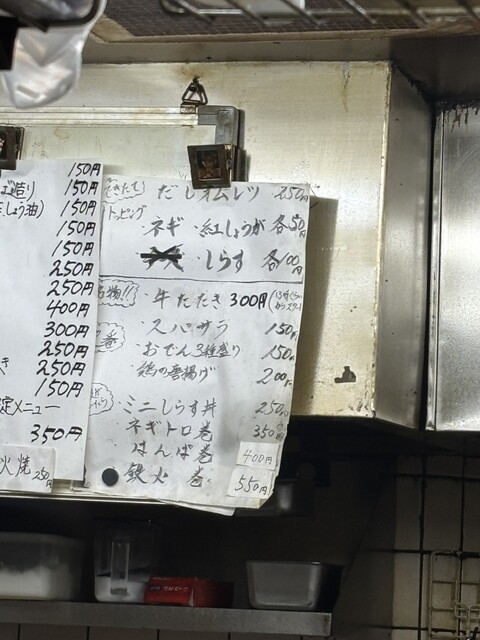 150円
150円
150円
150円
150円
250円
250円
400円
300円
250円
250円
150円
定メニュー
350円
火焼 250円
できたて だしオムレツ 250円
トッピング
・ネギ ・紅しょうが 各50円
・しらす 各100円
名物!! ・牛たたき 300円
・スパサラ 150円
・おでん3種盛り 150円
・鶏の唐揚げ 200円
・ミニしらす丼 250円
・ネギトロ巻 350円
・はんぱ巻 400円
・鉄火巻 550円